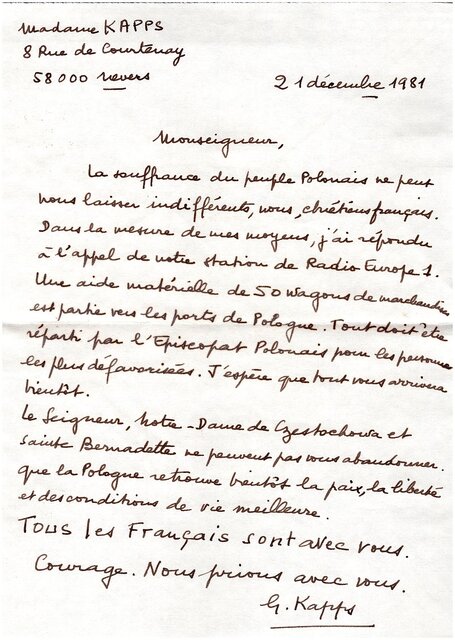 Madame KAPPS
8 Rue de Courtenay
58000 Nevers
21 décembre 1981
Monseigneur,
La souffrance du peuple Polonais ne peut
nous laisser indifférents, nous, chrétiens français.
Dans la mesure de mes moyens, j'ai répondu
à l'appel de notre station de Radio Europe 1.
Une aide matérielle de 50 wagons de marchandises
est partie vers les ports de Pologne. Tout doit être
réparti par l'Episcopat Polonais pour les personnes
les plus défavorisées. J'espère que tout vous arrivera
bientôt.
Le Seigneur, Notre-Dame de Czestochowa et
Sainte Bernadette ne peuvent pas vous abandonner.
que la Pologne retrouve bientôt la paix, la liberté
et des conditions de vie meilleure.
Tous les Français sont avec vous.
Courage. Nous prions avec vous.
G. Kapps